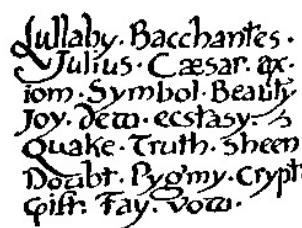 Lullaby · Bacchantes ·
Julius · Cæsar · ax-
iom · Symbol · Beauty
Joy · dew · ecstasy ·
Quake · Truth · sheen
Doubt · Pygmy · Crypt
Gift · Fay · vow ·